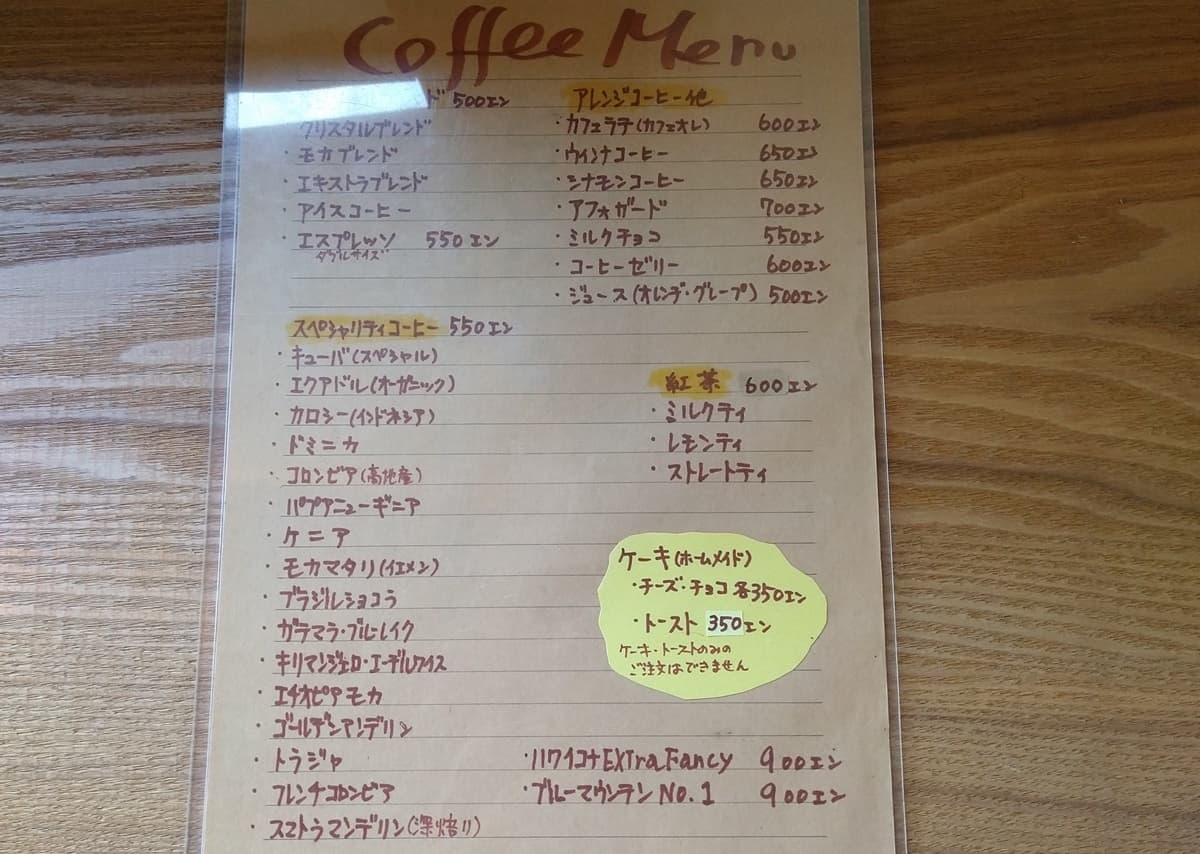 Coffee Menu
ド 500エン
クリスタルブレンド
・モカブレンド
・エキストラブレンド
・アイスコーヒー
・エスプレッソ 550エン
ダブルサイズ
アレンジコーヒー他
・カフェラテ(カフェオレ) 600エン
・ウィンナコーヒー 650エン
・シナモンコーヒー 650エン
・アフォガード 700エン
・ミルクチョコ 550エン
・コーヒーゼリー 600エン
・ジュース(オレンヂ・グレープ) 500エン
スペシャリティコーヒー 550エン
・キューバ(スペシャル)
・エクアドル(オーガニック)
・カロシー(インドネシア)
・ドミニカ
・コロンビア(高地産)
・パプアニューギニア
・ケニア
・モカマタリ(イエメン)
・ブラジルショコラ
・ガテマラ・ブルーレイク
・キリマンジェロ・エーデルワイス
・エチオピアモカ
・ゴールデンマンデリン
・トラジャ
・フレンチコロンビア
・スマトラマンデリン(深焙り)
紅茶 600エン
・ミルクティ
・レモンティ
・ストレートティ
ケーキ(ホームメイド)
・チーズ・チョコ 各350エン
・トースト 350エン
ケーキ・トーストのみの
ご注文はできません
・ハワイコナ Extra Fancy 900エン
・ブルーマウンテン No.1 900エン